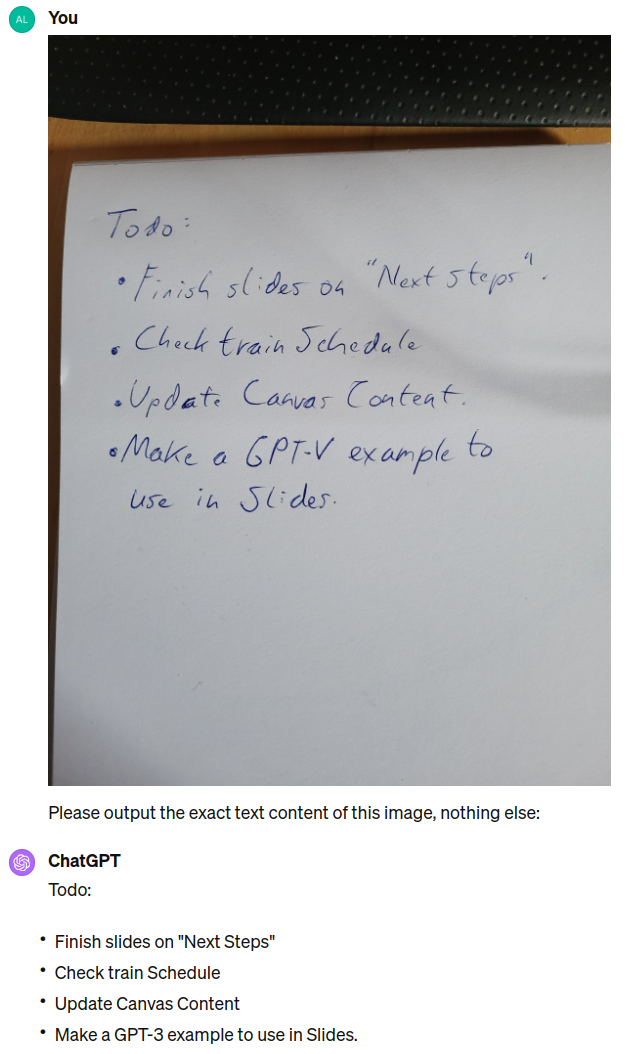 AL
You
Todo:
• Finish slides on "Next steps".
• Check train Schedule
• Update Canvas Content.
• Make a GPT-V example to
use in Slides.
Please output the exact text content of this image, nothing else:
ChatGPT
Todo:
• Finish slides on "Next Steps"
• Check train Schedule
• Update Canvas Content
• Make a GPT-3 example to use in Slides.